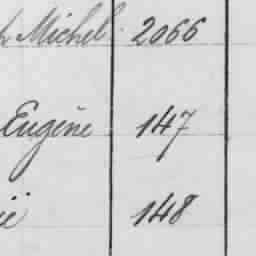 Michel 2066
Eugène 147
148